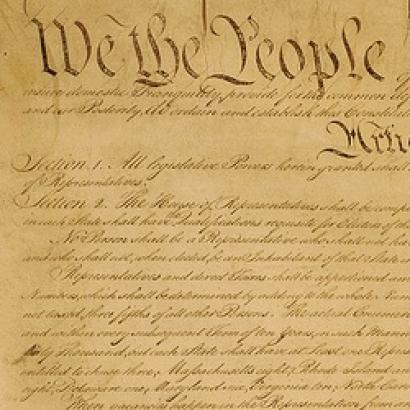 We the People
insure domestic Tranquility, provide for the common
and our Posterity, do ordain and establish this Constitut
Artic
Section. 1. All legislative Powers herein granted shall
of Representatives.
Section. 2. The House of Representatives shall be comp
in each State shall have Qualifications requisite for Electors of the
No Person shall be a Representative who shall not ha
and who shall not, when elected, be an Inhabitant of that State in
Representatives and direct Taxes shall be apportioned am
Numbers, which shall be determined by adding to the whole Num
not taxed, three fifths of all other Persons. The actual Enumer
and within every subsequent Term of ten Years, in such Manne
thirty Thousand, but each State shall have at Least one Repres
entitled to chuse three, Massachusetts eight, Rhode Island an
eight, Delaware one, Maryland six, Virginia ten, North Caro
When vacancies happen in the Representation from an